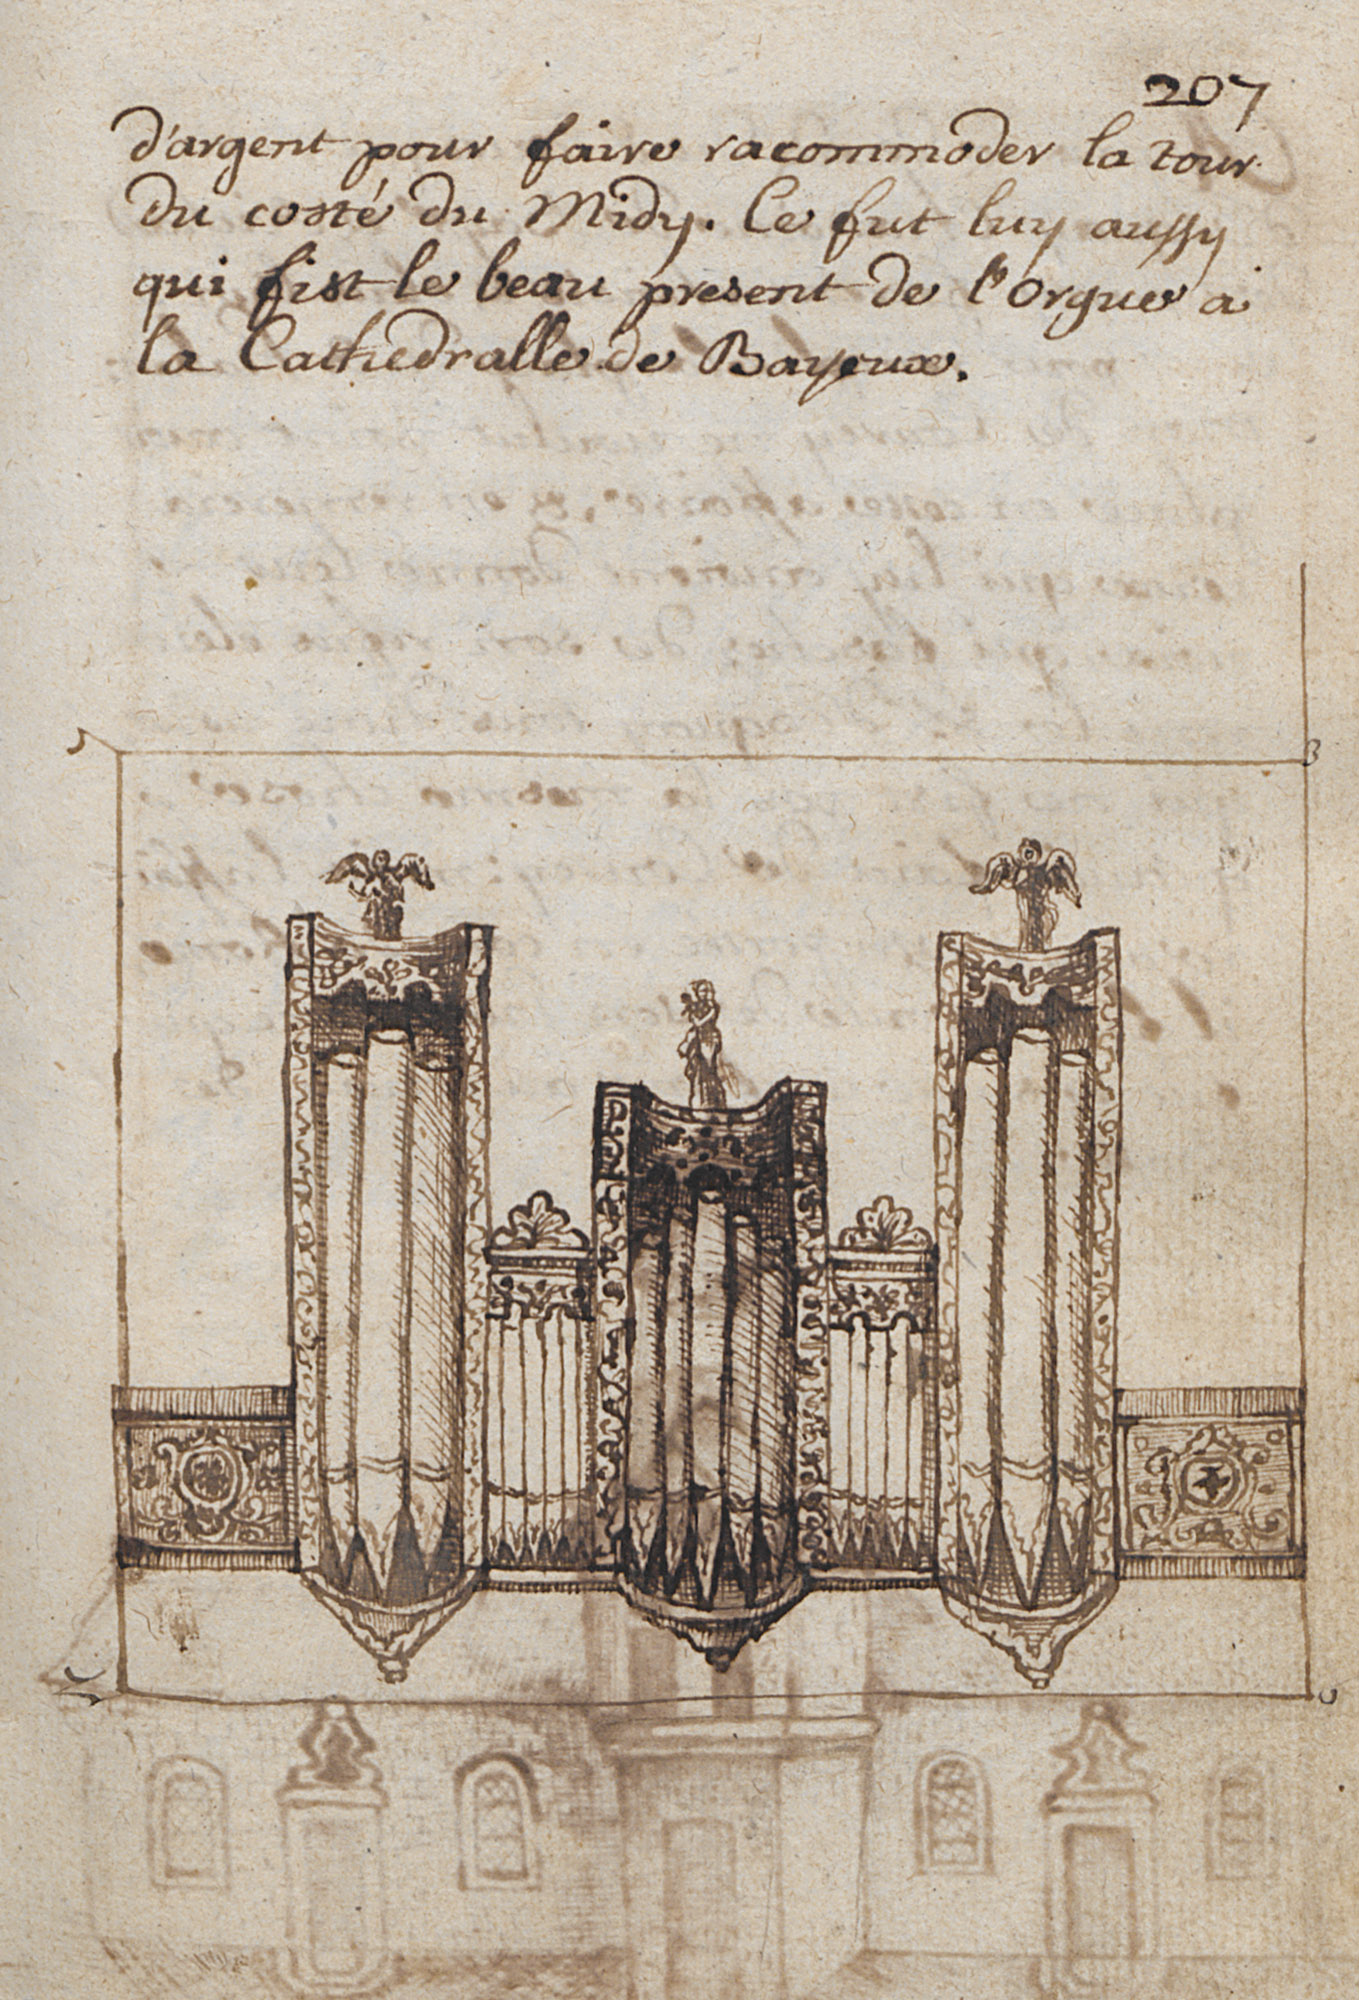 207
d'argent pour faire racommoder la tour
du costé du Midy. Ce fut luy aussy
qui fist le beau present de l'Orgue a
la Cathedralle de Bayeux.